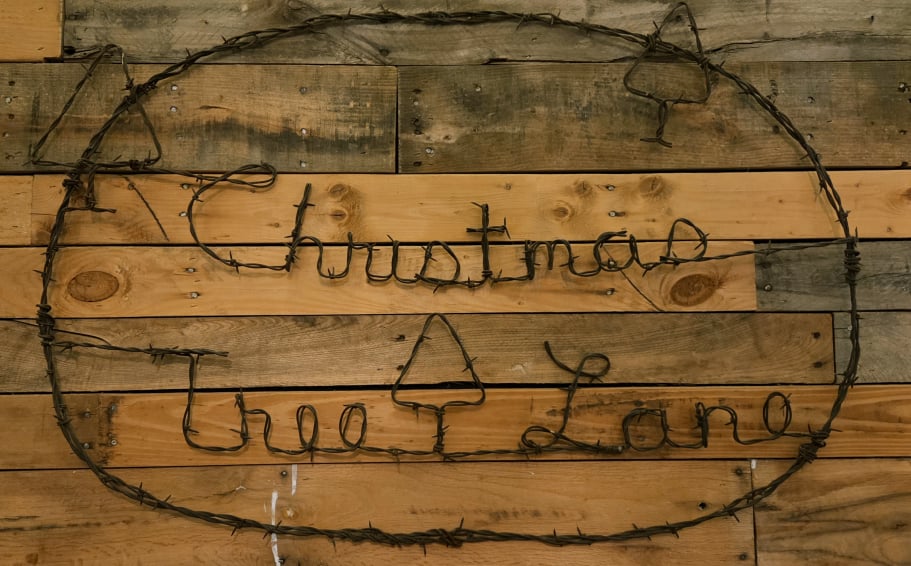 Christmas
Tree Lane